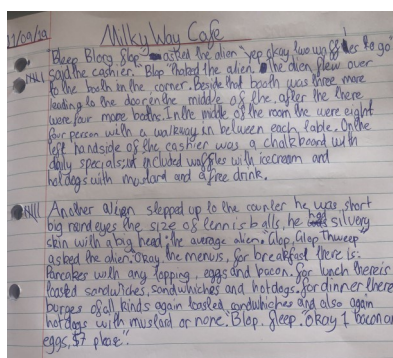 11/09/19 Milky Way Cafe
"Bleep Blorg, Glop" asked the alien "yep okay two waffles to go"
said the cashier. "Blop" thaked the alien. the alien flew over
to the booth in the corner. Beside that booth was three more
leading to the door in the middle of the. after the there
were four more booths. In the middle of the room the were eight
four person with a walkway in between each table. On the
left handside of the cashier was a chalkboard with
daily specials; it included waffles with icecream and
hotdogs with mustard and a free drink.
Another alien stepped up to the counter he was short
big round eyes the size of tennis balls, he had silvery
skin with a big head; the average alien. Glop, Glop Thweep"
asked the alien. Okay the menus, for breakfast there is:
Pancakes with any topping, eggs and bacon. for lunch there is
toasted sandwiches, sandwhiches and hotdogs. for dinner there
burges of all kinds again toasted sandwhiches and also again
hotdogs with mustard or none. "Blop. fleep." Okay 1 bacon and
eggs, $7 please".